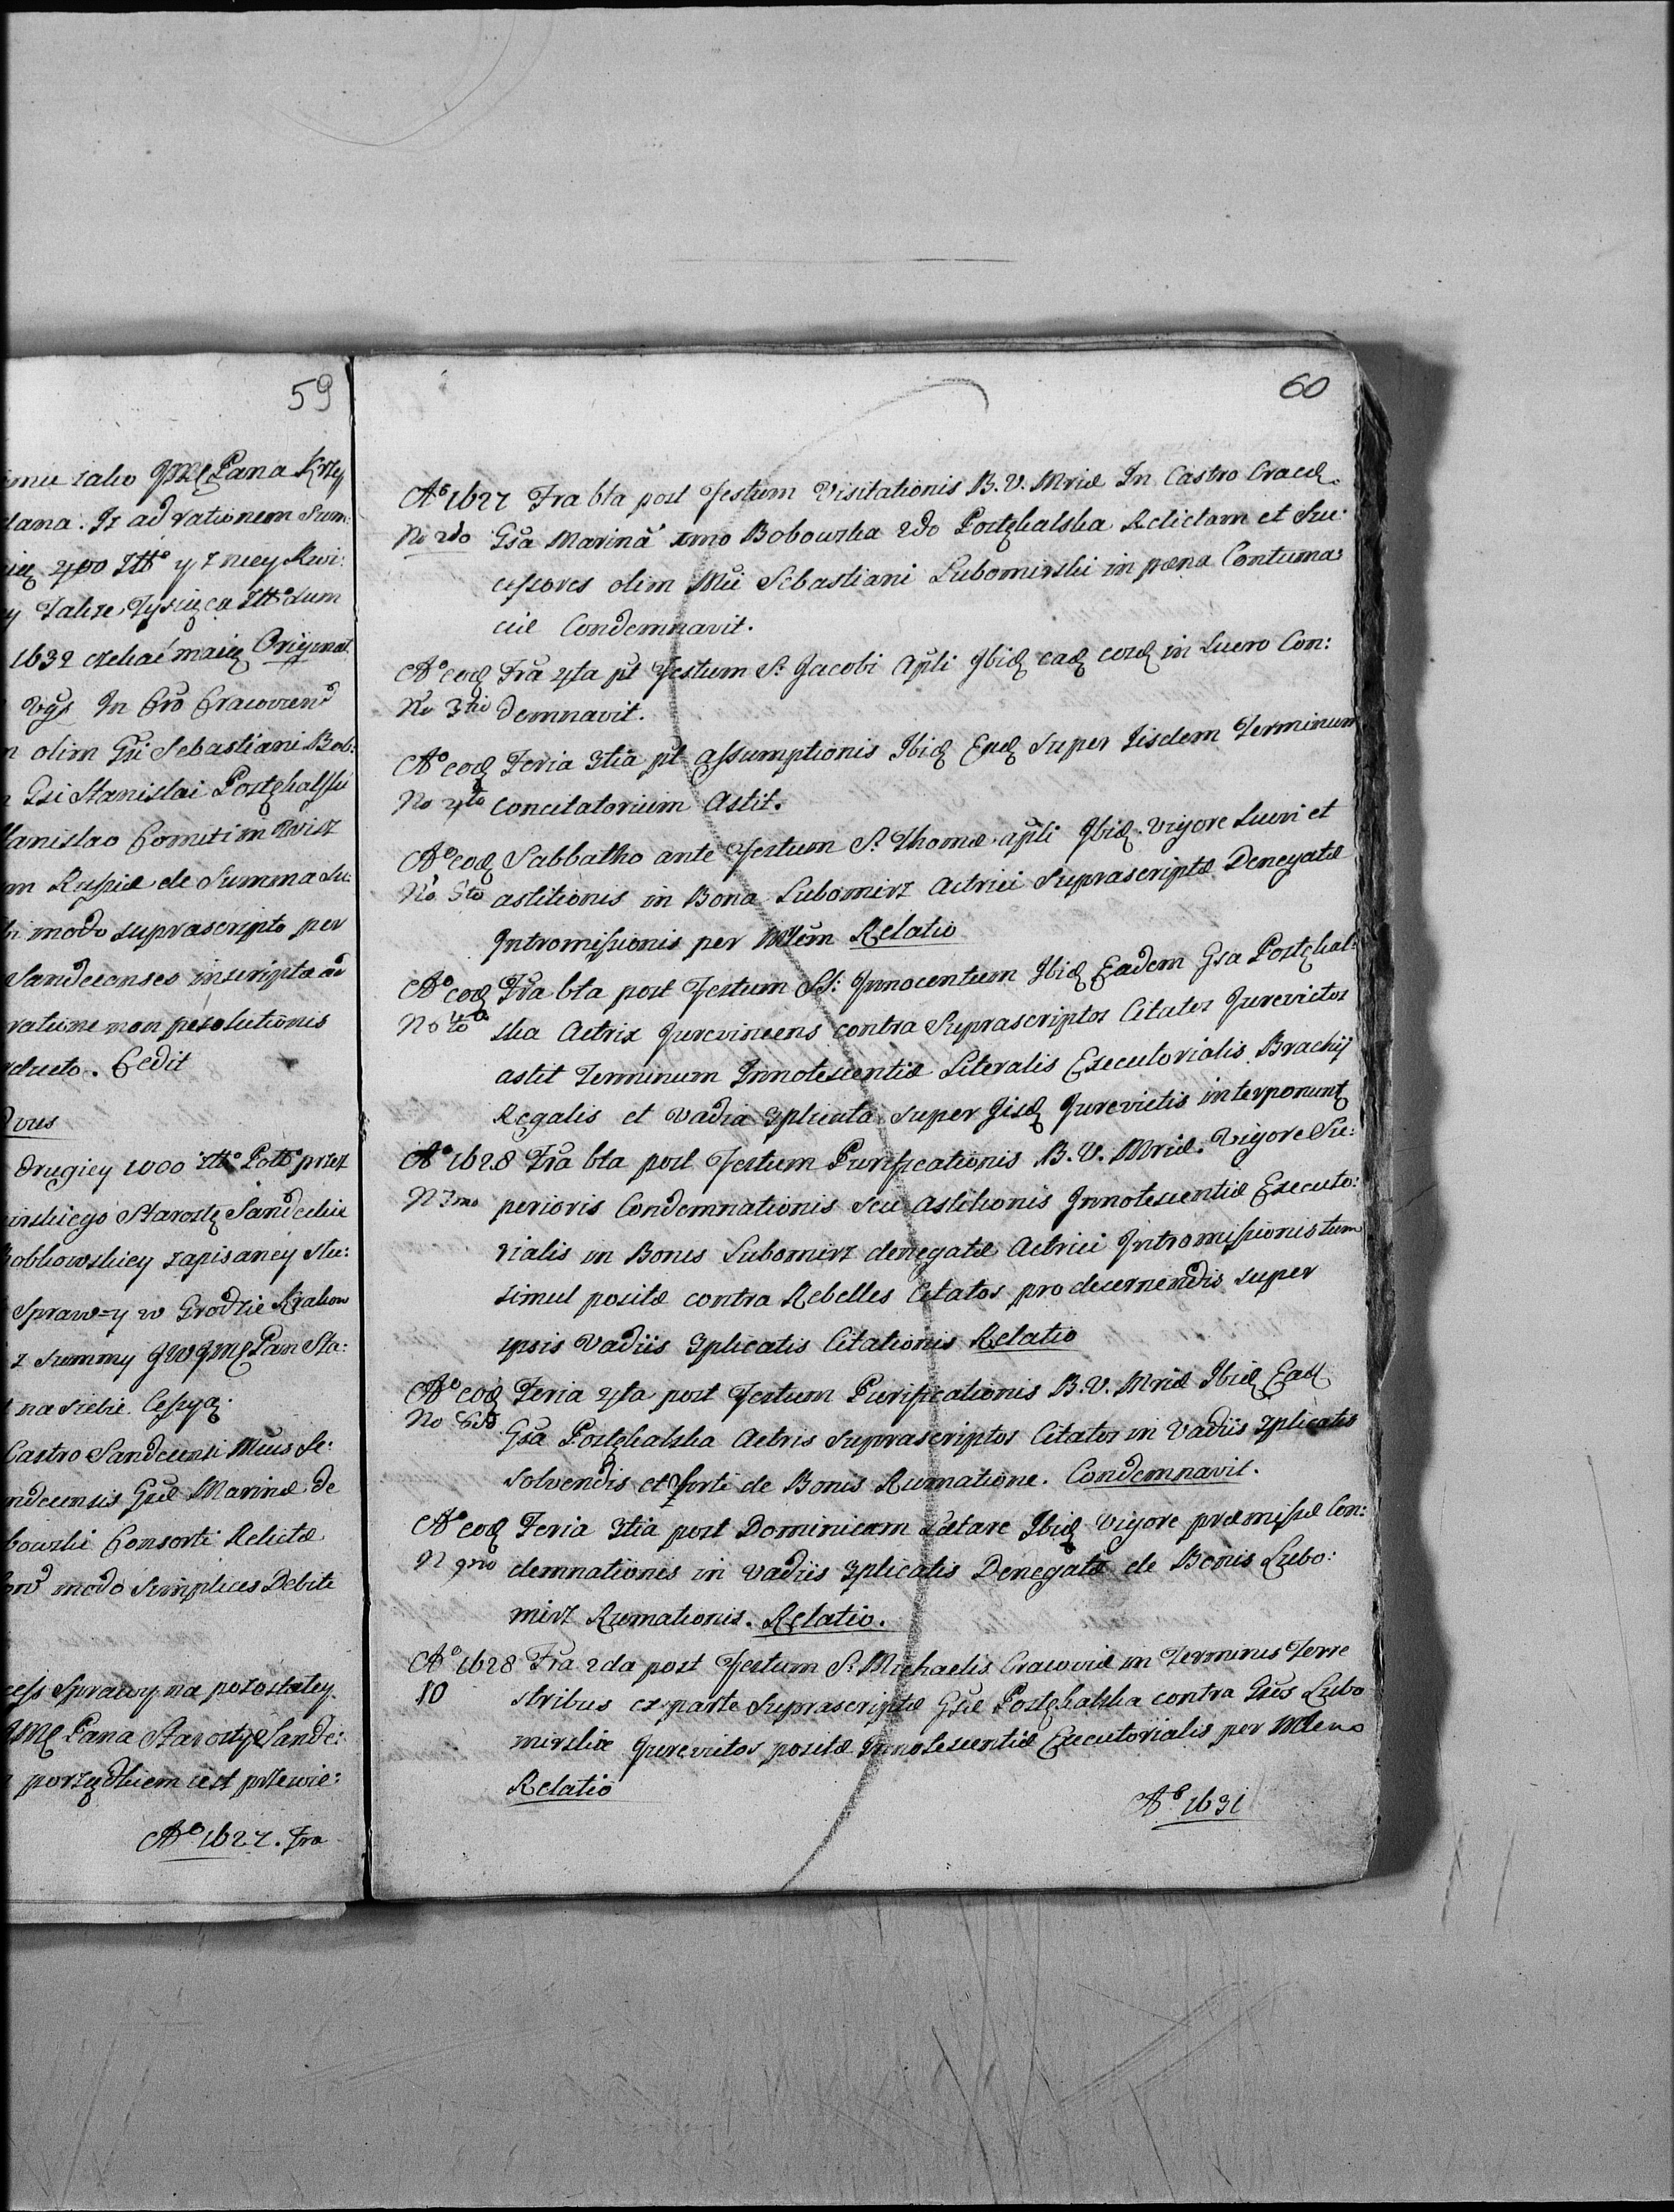 59
imie iako JMę Pana Krzy
dana. Iz ad rationem Sum:
400 Złł° y z niey Kwi:
y Takze Tysiąca Złł° dum
1632 czekać maią Oryginał
In Cro Cracovien
olim Gsi Sebastiani Bob:
Gsi Stanislai Postękalski
Stanislao Comiti in Wisz
Russiæ de Summa Su:
modo suprascripto per
Sandecenses inscripta ad
ratione non pesolutionis
Cedit
drugiey 1000 złł° Poll° przez
irskiego Starostę Sandeckie
Bobkowskiey zapisaney Stu:
Spraw=y w Grodzie Krakow
z Summy JWJMę Pan Sta:
na siebie Cessyą.
Castro Sandecensi Mcus Se:
ndecensis Gsæ Marinæ de
bowski Consorti Relictæ
modo Simplices Debiti
cess Sprawy na pozostałey
JMę Pana Starosty Sande:
porządkiem iest przewie:
A° 1627. Fra
60
A° 1627 Fra 6ta post Festum Visitationis B. V. Mriæ In Castro Cracę.
No 2do Gsa Marinã 1mo Bobowska 2do Postękalska Relictam et Suc:
cessores olim Mci Sebastiani Lubomirski in pœna Contuma:
ciæ Condemnavit.
A° eoę Fra 4ta pt Festum S. Jacobi Apli Ibię eaę eosę in Lucro Con:
No 3tio demnavit.
A° eoę Feria 3tia pt Assumptionis Ibię Eaę Super Iisdem Terminum
No 4to concitatorium Astit.
A° eoę Sabbatho ante Festum S. Thomæ apli Ibię. Vigore Lucri et
No 5to astitionis in Bona Lubomirz Actrici Suprascriptæ Denegatæ
Intromissionis per Mlem Relatio
A° eoę Fra 6ta post Festum SS: Innocentum Ibię Eadem Gsa Postękal:
No 6to ska Actrix Jurevincens contra Suprascriptos Citatos Jurevictos
astit Terminum Innotescentiæ Literalis Executorialis Brachij
Regalis et Vadia 3plicata super Iisę Jurevictis interponunt
A° 1628 Fra 6ta post Festum Purificationis B. V. Mriæ. Vigore Su:
N 7mo perioris Condemnationis Seu Astitionis Innotescentiæ Executo:
rialis in Bonis Lubomirz denegatæ Actrici Intromissionis tum
simul positæ contra Rebelles Citatos pro decernendis super
ipsis Vadiis 3plicatis Citationis Relatio
A° eoę Feria 4ta post Festum Purificationis B. V. Mriæ Ibię Eaę
No 8vo Gsa Postękalska Actris Suprascriptos Citatos in Vadiis 3plicatis
Solvendis et forti de Bonis Rumatione. Condemnavit.
A° eoę Feria 3tia post Dominicam Lætare Ibię Vigore præmissæ Con:
N 9no demnationis in Vadiis 3plicatis Denegatæ de Bonis Lubo:
mirz Rumationis. Relatio.
A° 1628 Fra 2da post Festum S. Michaelis Cracoviæ in Terminis Terre
10 stribus ex parte Suprascriptæ Gsæ Postękalska contra Gsos Lubo
mirskie Jurevictos positæ Innotescentiæ Executorialis per Mlem
Relatio
A° 1631